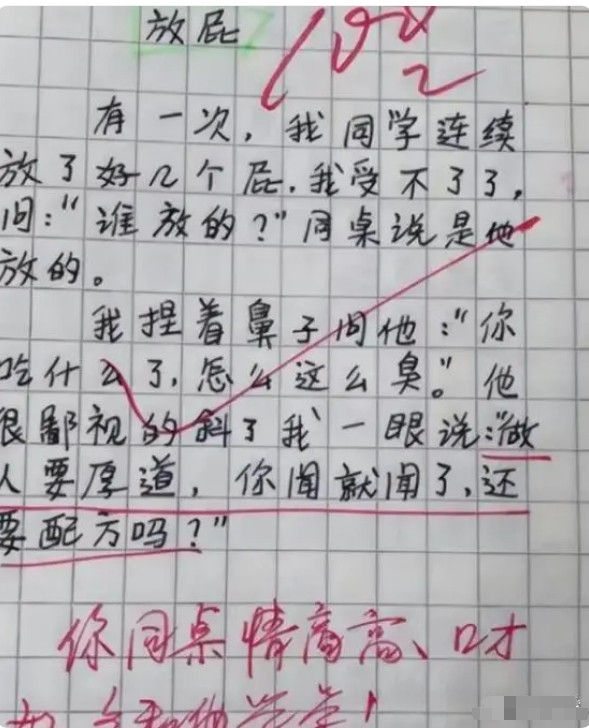 放屁
有一次，我同学连续
放了好几个屁.我受不了了，
问：“谁放的？”同桌说是他
放的。
我捏着鼻子问他：“你
吃什么了，怎么这么臭。”他
很鄙视的斜了我一眼说：“做
人要厚道，你闻就闻了，还
要配方吗？”
你同桌情商高、口才